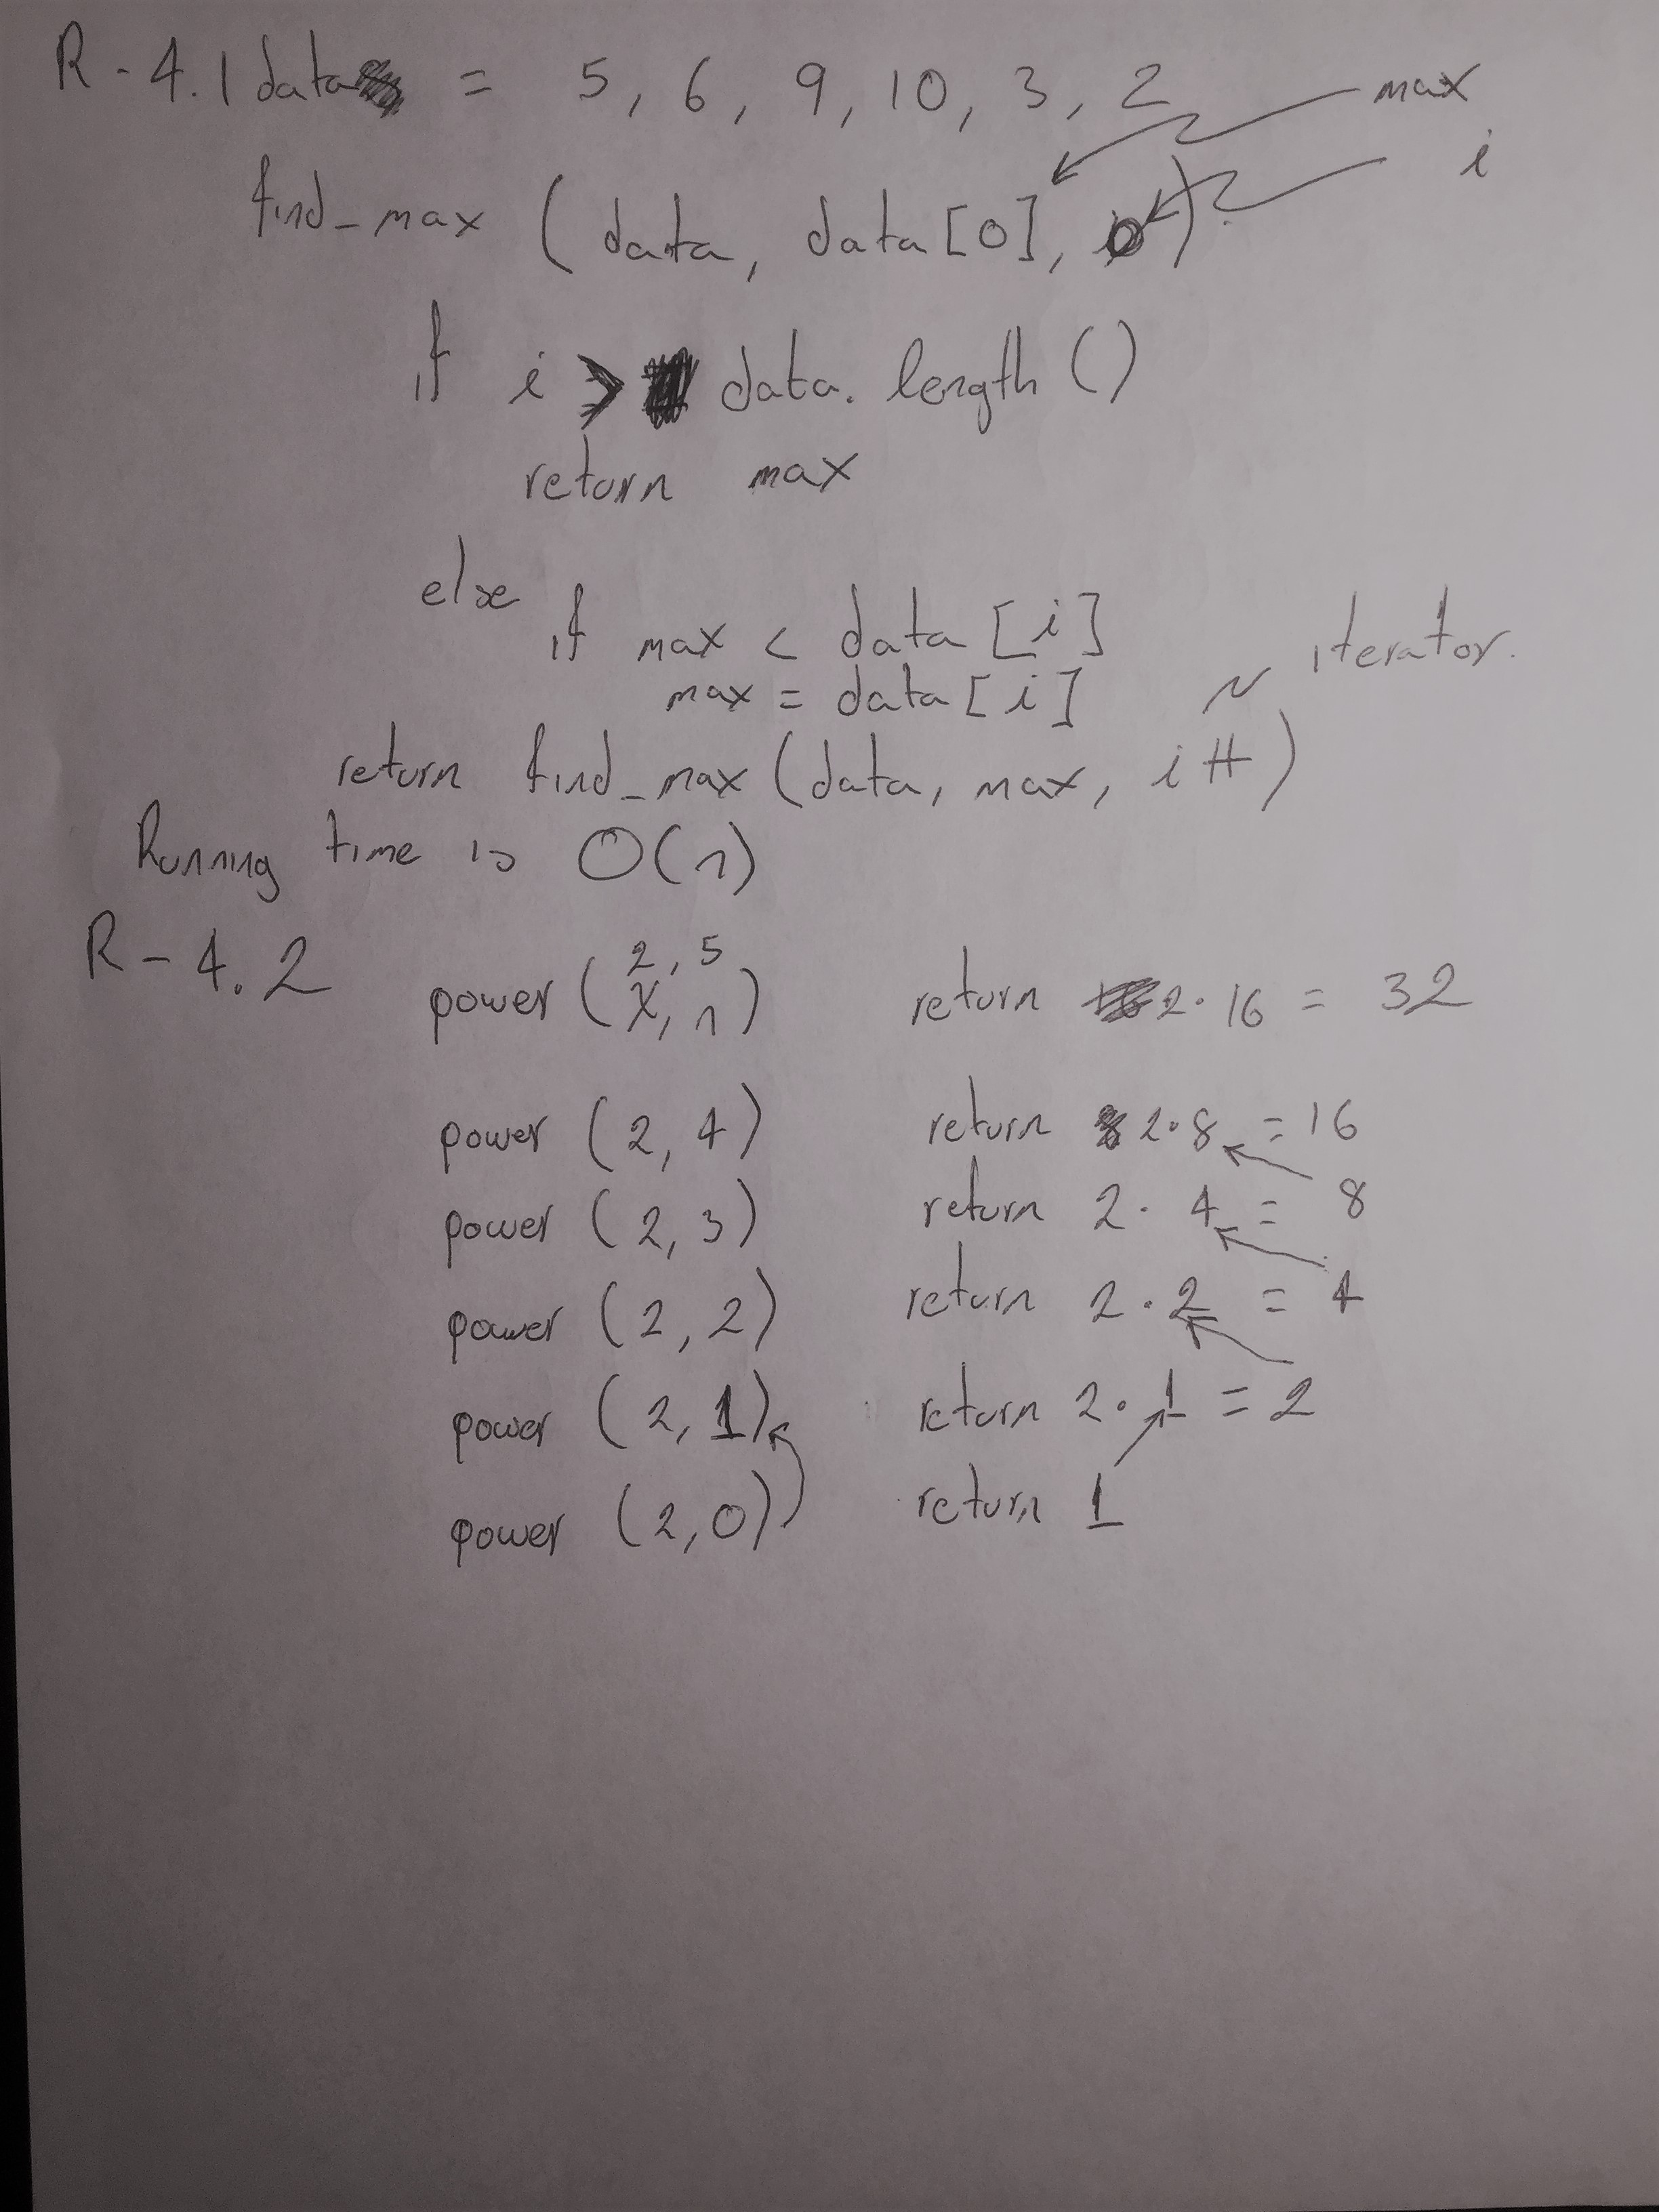 R-4.1 data = 5, 6, 9, 10, 3, 2
max
find_max (data, data[0], 0)
i
if i > data.length()
return max
else
if max < data[i]
max = data[i]
iterator.
return find_max(data, max, i++)
Running time is O(n)
R-4.2
2, 5
power (x, n) return 2·16 = 32
power (2, 4) return 2·8 = 16
power (2, 3) return 2·4 = 8
power (2, 2) return 2·2 = 4
power (2, 1) return 2·1 = 2
power (2, 0) return 1